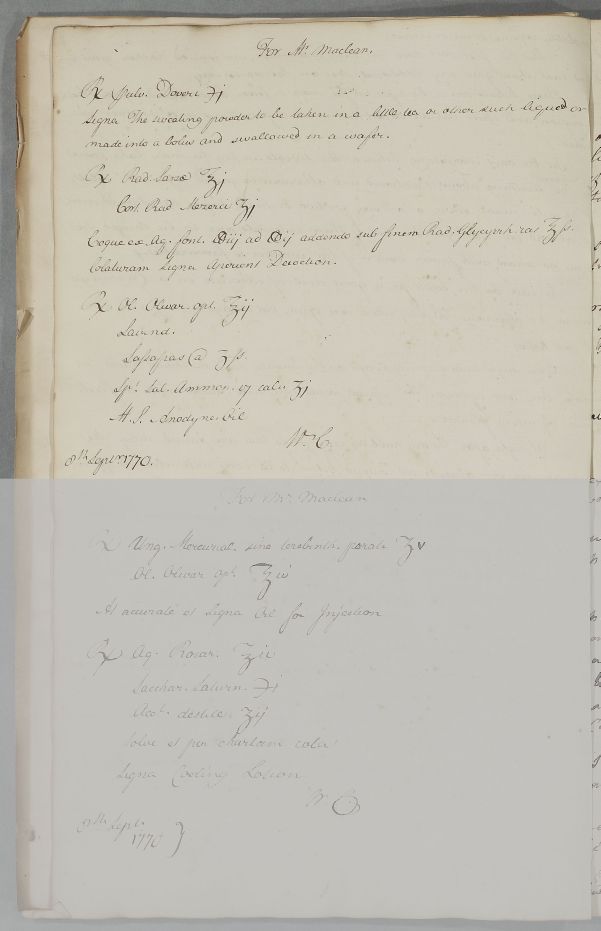 For Mr. Maclean.
℞ Pulv. Doveri ℈j
Signa The sweating powder to be taken in a little tea or other such liquid or
made into a bolus and swallowed in a wafer.
℞ Rad. Sarsæ ℥j
Cort. Rad Mezerei ʒj
Coque ex Aq. font. ℔iij ad ℔ij addendo sub finem Rad. Glycyrrh. ras ℥fs.
Colaturam Signa Aperient Decoction.
℞ Ol. Olivar. opt. ℥ij
Lavend.
Sassafras @ ʒfs.
Spt. Sal. Ammon. c calce ʒj
M. S. Anodyne Oil
Wm. C.
8th Septr. 1770.
For Mr. Maclean
℞ Ung. Mercurial. sine terebinth. parat. ʒv
Ol. Olivar opt. ℥iv
M accurate et Signa Oil for Injection
℞ Aq. Rosar. ℥ii
Sacchar. Saturn. ℈j
Acet. destill. ʒij
Solve et per chartam cola
Signa Cooling Lotion
W C
8th Septr.
1770 }